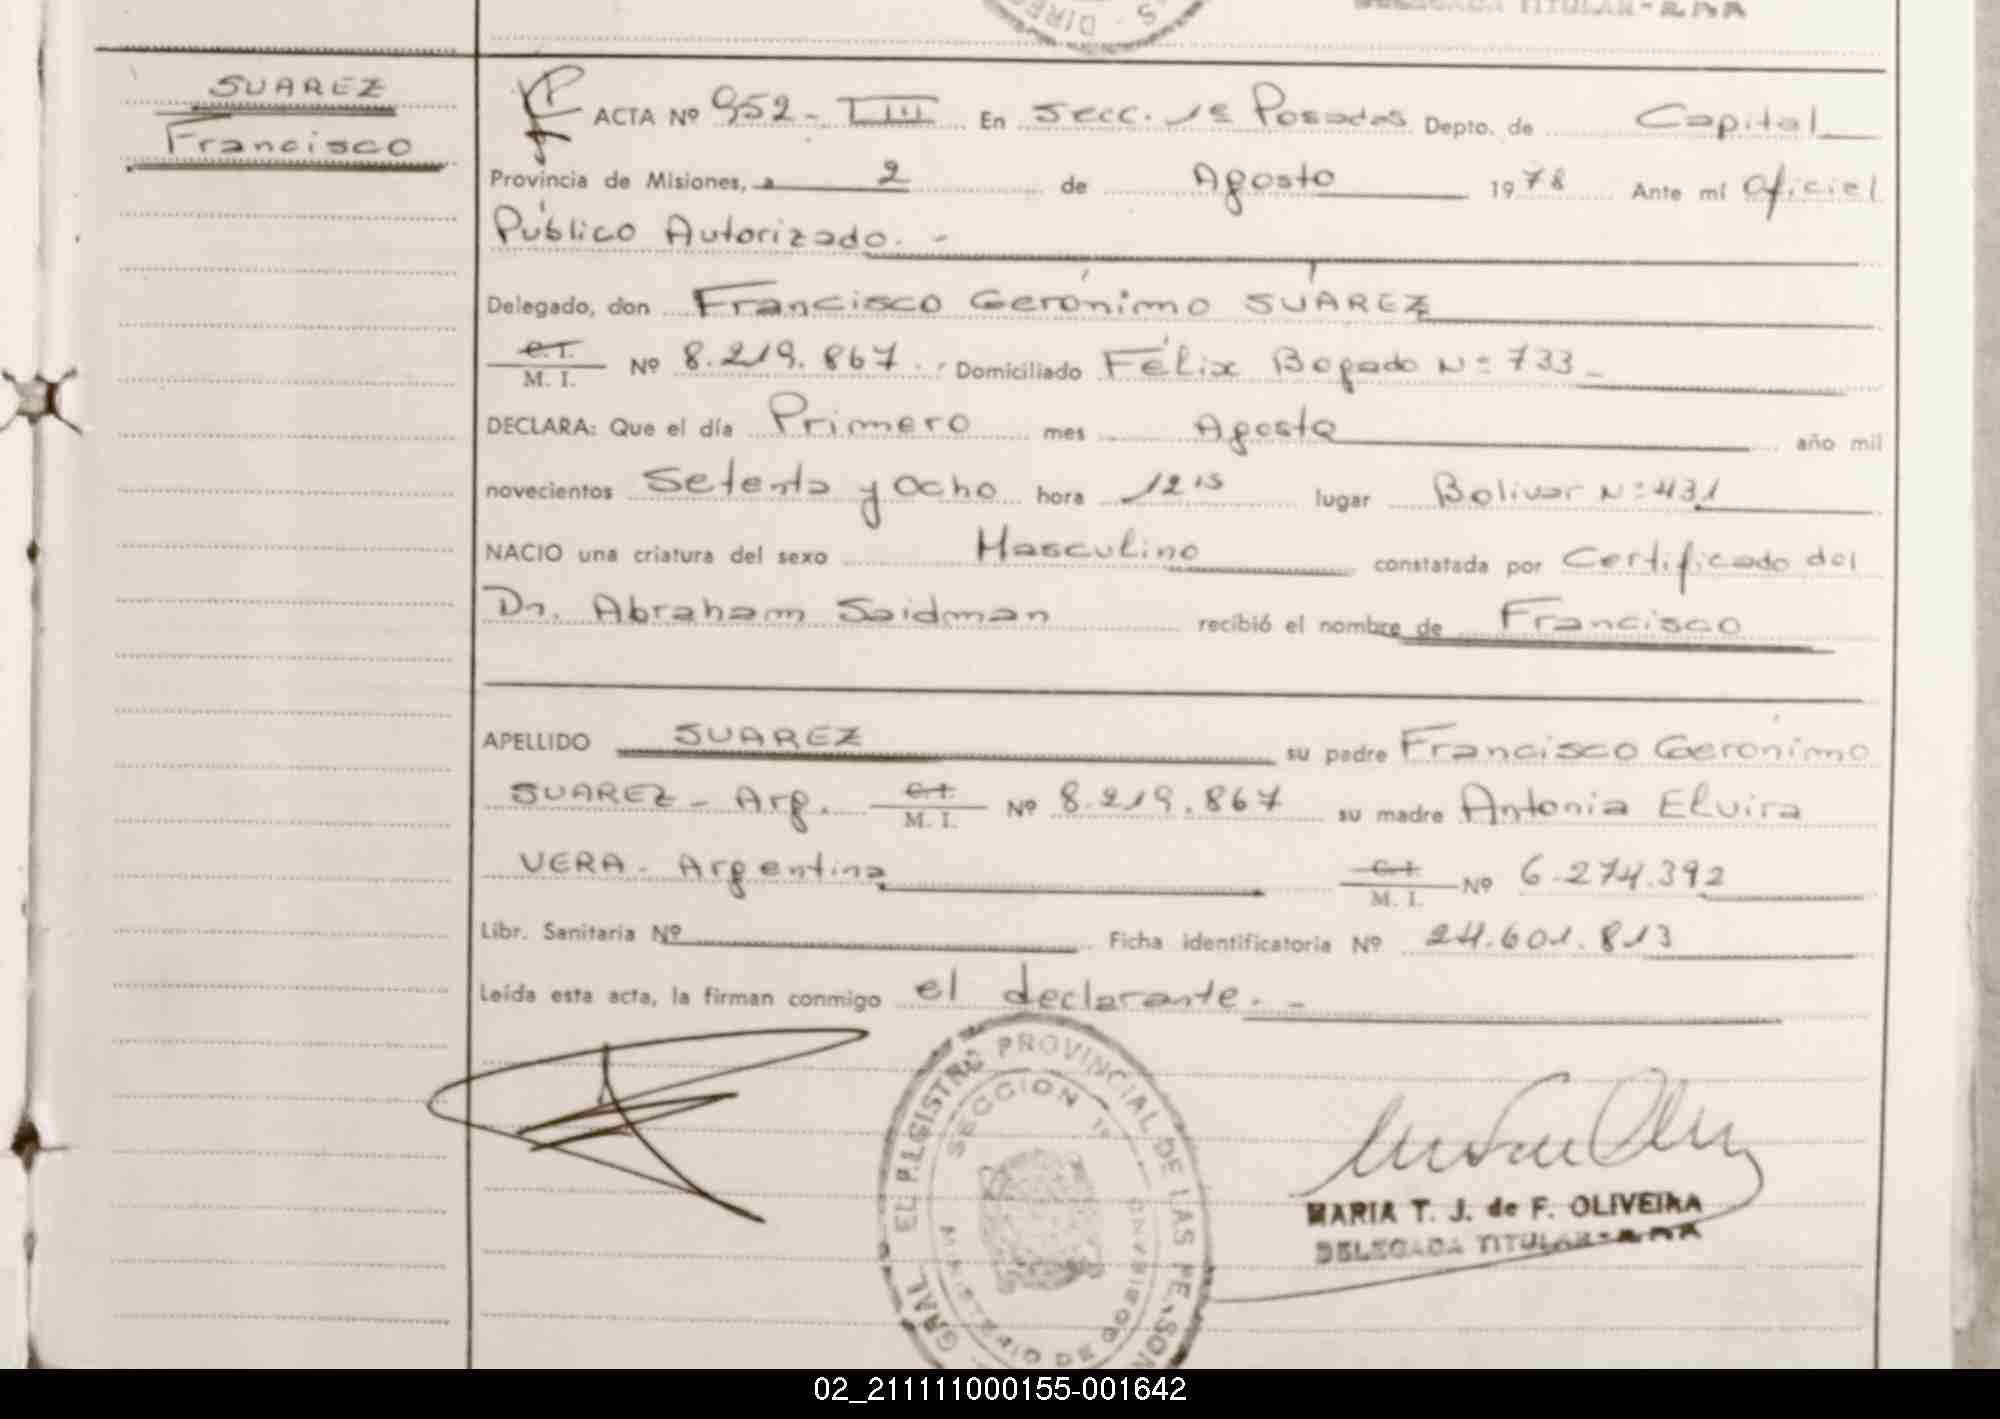 DIREC
S
DELEGADA TITULAR - R.P.P.
SUAREZ
Francisco
ACTA Nº 952 - TIII En Secc. 1ª Posadas Depto. de Capital
Provincia de Misiones, a 2 de Agosto 1978 Ante mí Oficial
Público Autorizado. -
Delegado, don Francisco Gerónimo SUÁREZ
C.I.
M. I. Nº 8.219.867. Domiciliado Félix Bogado Nº 733 -
DECLARA: Que el día Primero mes Agosto año mil
novecientos Setenta y Ocho hora 12 15 lugar Bolivar Nº 431
NACIO una criatura del sexo Masculino constatada por Certificado del
Dr. Abraham Saidman recibió el nombre de Francisco
APELLIDO SUAREZ su padre Francisco Gerónimo
SUAREZ - Arg. C.I. M. I. Nº 8.219.867 su madre Antonia Elvira
VERA - Argentina C.I. M. I. Nº 6.274.392
Libr. Sanitaria Nº Ficha identificatoria Nº 24.601.813
Leída esta acta, la firman conmigo el declarante. -
GRAL EL REGISTRO PROVINCIAL DE LAS PERSON
SECCION 1ª
MARIA T. J. de F. OLIVEIRA
DELEGADA TITULAR -
02_211111000155-001642